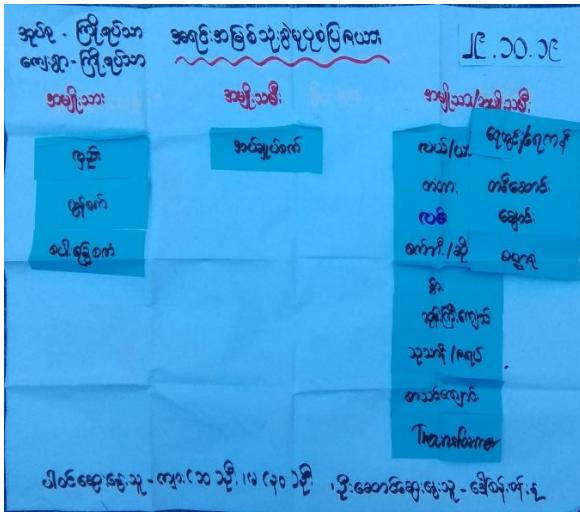 အုပ်စု - ကြို့ရပ်သာ
ကျေးရွာ - ကြို့ရပ်သာ
အရင်းအမြစ်သုံးစွဲမှုပုံစံပြဇယား
၂၉.၁၀.၁၉
အမျိုးသား
အမျိုးသမီး
အမျိုးသား/အမျိုးသမီး
လှည်း
ထွန်စက်
စပါးခြွေစက်
အပ်ချုပ်စက်
လယ်/ယာ
တံတား
လမ်း
စက်ဘီး/ဆို
နွား
ဘုန်းကြီးကျောင်း
သုသာန်/ဇရပ်
စာသင်ကျောင်း
Transformer
ရေတွင်း/ရေကန်
တန်ဆောင်း
ချောင်း
ဓမ္မာရုံ
ပါဝင်ဆွေးနွေးသူ - ကျား (၁၁) ဦး၊ မ (၃၀) ဦး ၊ ဦးဆောင်ဆွေးနွေးသူ -